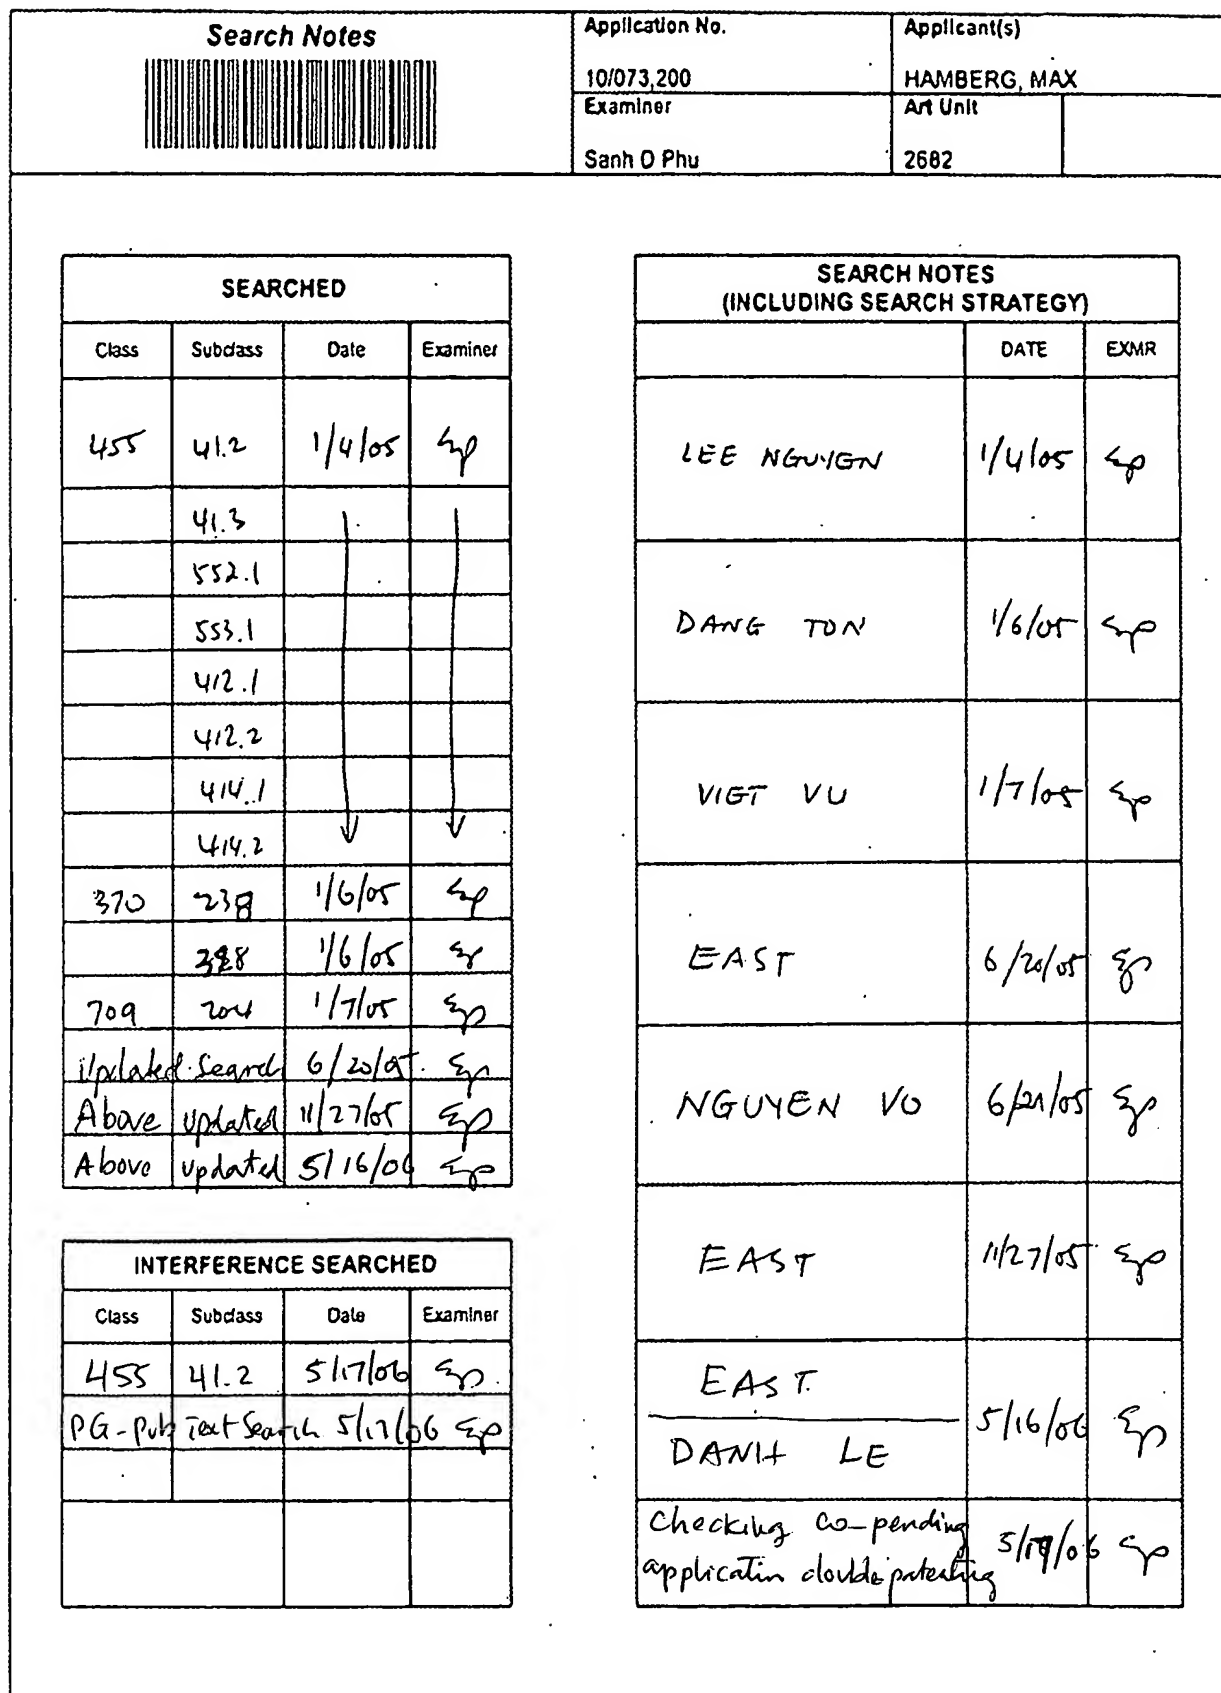 Search Notes
Application No.
10/073,200
Applicant(s)
HAMBERG, MAX
Examiner
Sanh D Phu
Art Unit
2682
SEARCHED
Class Subclass Date Examiner
455 41.2 1/4/05 Sp
41.3
552.1
553.1
412.1
412.2
414.1
414.2
370 238 1/6/05 Sp
1/6/05 Sp
709 204 1/7/05 Sp
Updated Search 6/20/05 Sp
Above updated 11/27/05 Sp
Above updated 5/16/06 Sp
INTERFERENCE SEARCHED
Class Subclass Date Examiner
455 41.2 5/17/06 Sp
PG-Pub Text Search 5/17/06 Sp
SEARCH NOTES
(INCLUDING SEARCH STRATEGY)
DATE EXMR
LEE NGUYEN 1/4/05 Sp
DANG TON 1/6/05 Sp
VIET VU 1/7/05 Sp
EAST 6/20/05 Sp
NGUYEN VO 6/21/05 Sp
EAST 11/27/05 Sp
EAST
DANH LE 5/16/06 Sp
Checking co-pending
applicatin double patenting Sp